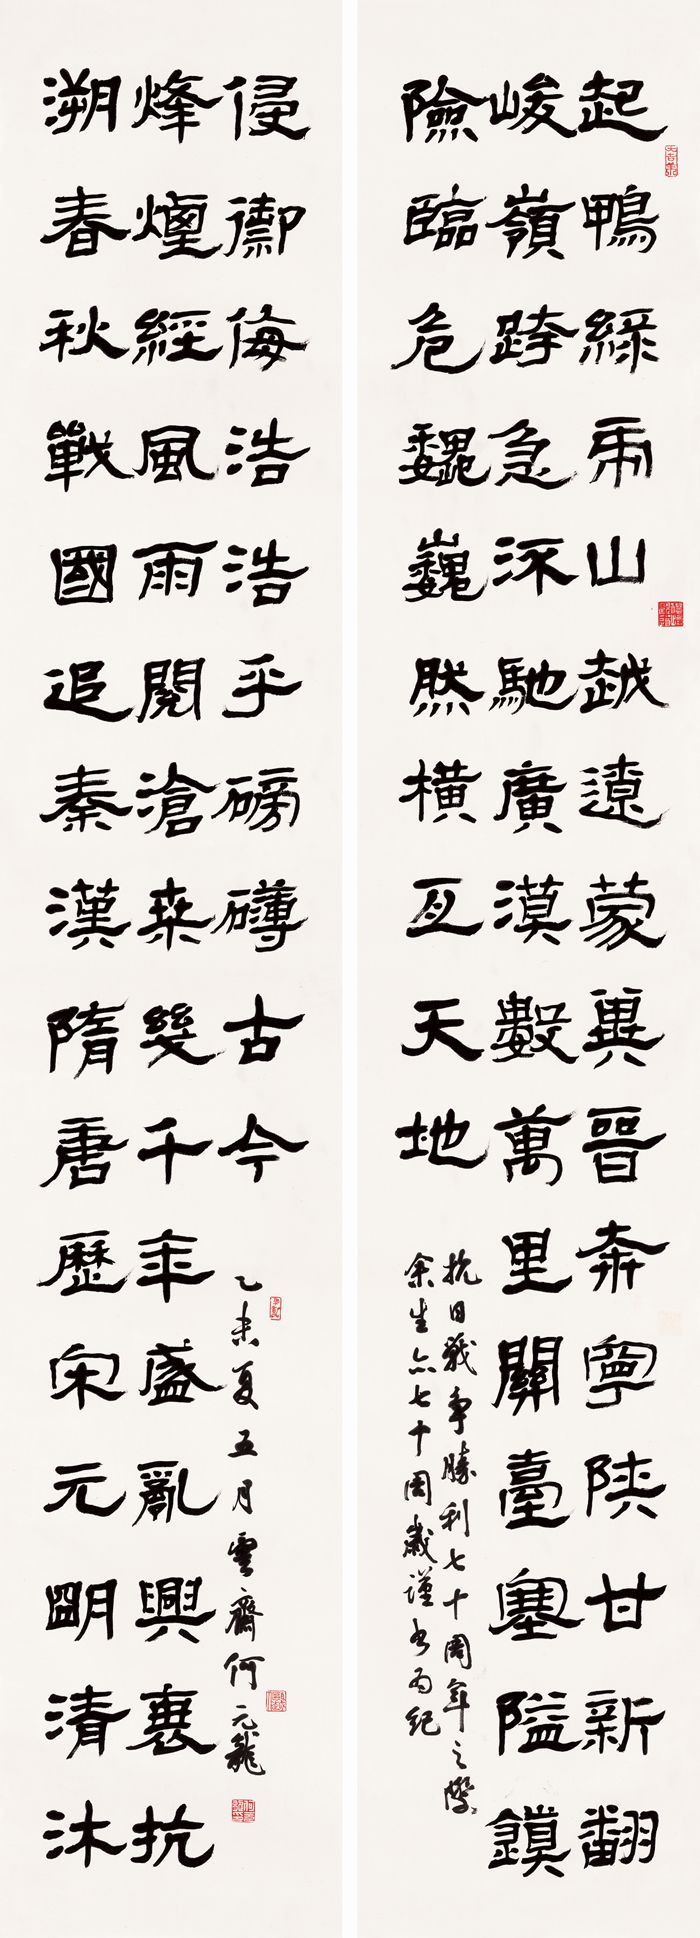 起鴨綠乕山越遼蒙冀晉奔寧陝甘新翻
峻嶺跨急流馳廣漠數萬里關臺塞隘鎮
險臨危巍巍然橫亙天地
抗日戰爭勝利七十周年之際
余生亦七十周歲謹書為紀
溯春秋戰國追秦漢隋唐歷宋元明清沐
烽煙經風雨閱滄桑幾千年盛亂興衰抗
侵禦侮浩浩乎磅礡古今
乙未夏五月雲齋何元龍